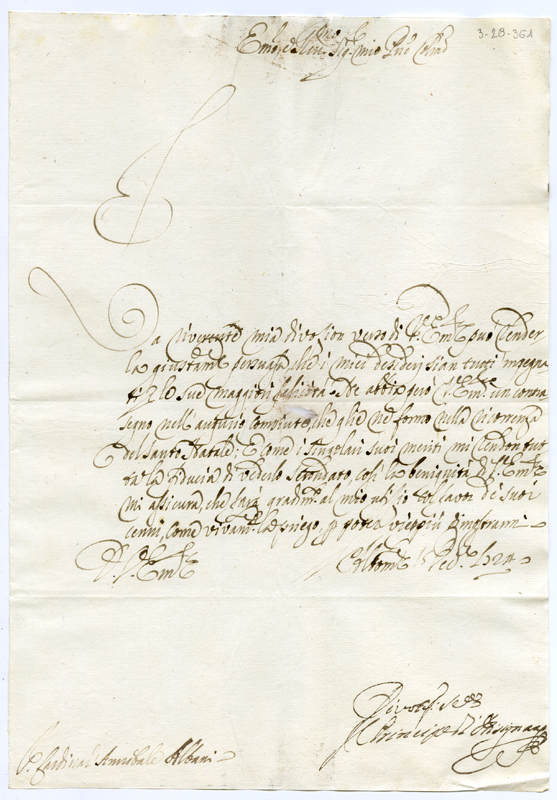 3-28-361
Em.mo e Rev.mo Sig.r mio P.ne Col.mo
La riverente mia divozion verso di V.ra Em.za può render
la giustam.te persuasa, che i miei desiderj sian tutti impegna
ti p le sue maggiori felicità. Ne abbia però V.ra Em.za un contra
segno nell'augurio compiuto, che glie ne formo nella ricorrenza
del Santo Natale: E come i singolari suoi meriti mi rendon tut
ta la fiducia di vederlo secondato, così la benignità di V.ra Em.za
mi assicura, che sarà gradim.to al mio
cenni, come vivam.te la priego, p poter viepiù
Di V.ra Em.za
Divotis. Se
Il Principe di Bisignano
S. Cardinal Annibale Albani